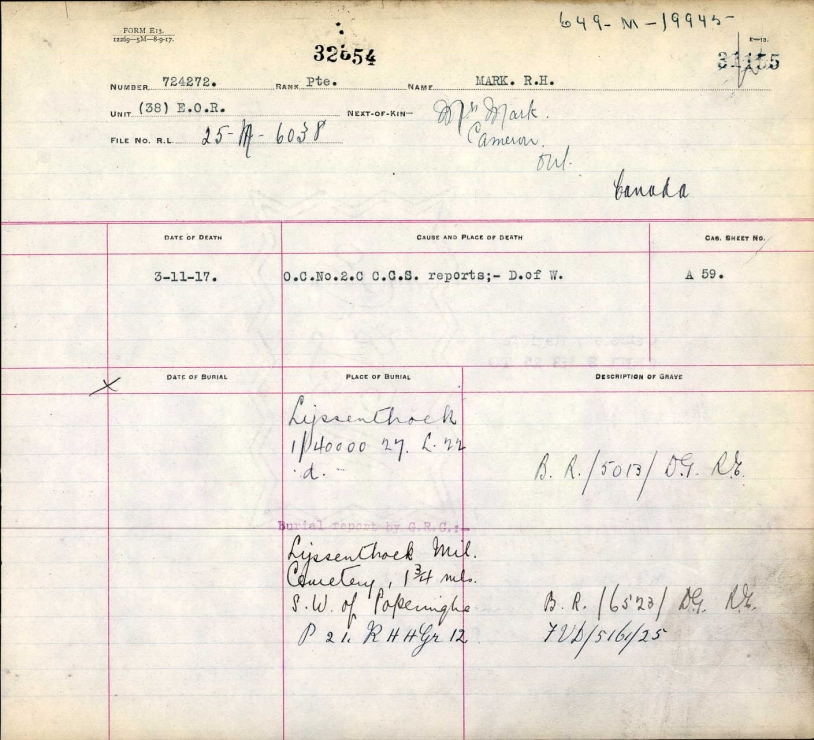 FORM E13.
12269—5M—8-9-17.
649-M-19945-
32654
E—13.
31155
NUMBER 724272. RANK Pte. NAME MARK. R.H.
UNIT (38) E.O.R. NEXT-OF-KIN— Mrs Mark.
Cameron.
Ont.
FILE NO. R.L. 25-M-6038
Canada
DATE OF DEATH CAUSE AND PLACE OF DEATH CAS. SHEET NO.
3-11-17. O.C.No.2.C C.C.S. reports;- D.of W. A 59.
X DATE OF BURIAL PLACE OF BURIAL DESCRIPTION OF GRAVE
Lijssenthoek
1/40000 27. L. 22
.d. B. R./5013/ D.G. R.E.
Burial report by G.R.C.:-
Lijssenthoek Mil.
Cemetery, 1 3/4 mls.
S.W. of Poperinghe B. R. /6523/ D.G. R.E.
P 21. R HH Gr 12 FVD/5161/25